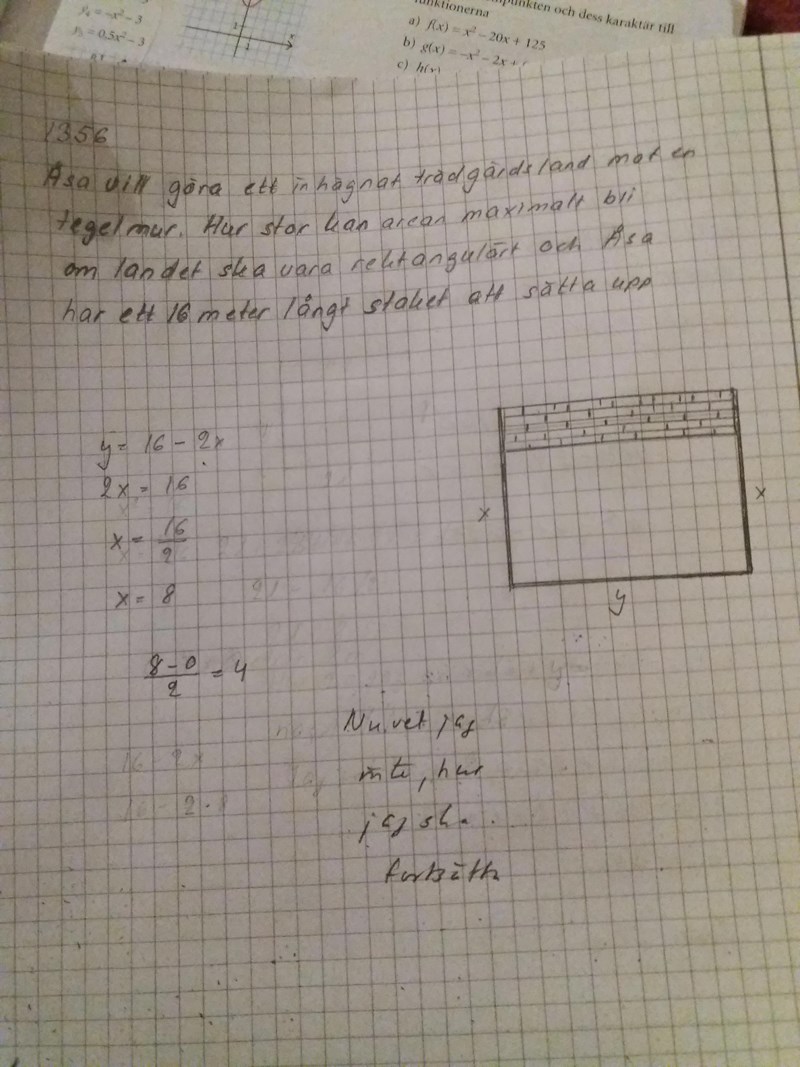 y₄ = -x² - 3
y₅ = 0,5x² - 3
punkten och dess karaktär till
funktionerna
a) f(x) = x² - 20x + 125
b) g(x) = -x² - 2x +
c) h(x)
1356
Åsa vill göra ett inhägnat trädgårdsland mot en
tegelmur. Hur stor kan arean maximalt bli
om landet ska vara rektangulärt och Åsa
har ett 16 meter långt staket att sätta upp
y = 16 - 2x
2x = 16
x = 16/2
x = 8
x
x
y
8-0/2 = 4
Nu vet jag
inte, hur
jag ska
fortsätta
16 - 2x
16 - 2·